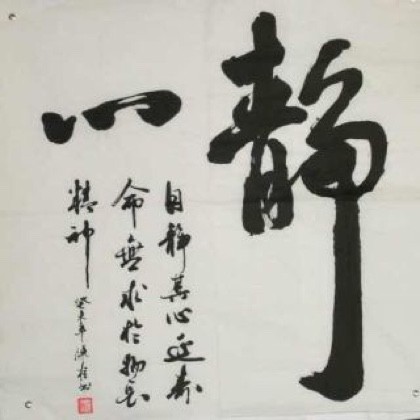 静心
自静其心延寿
命無求於物长
精神
癸未年